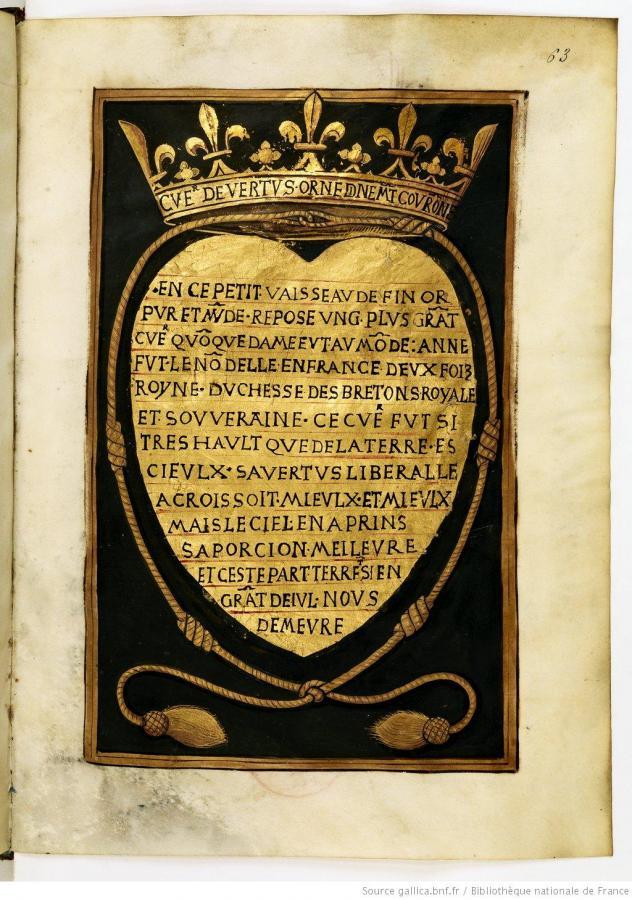 63
CVEᴿ DE VERTVS · ORNE DIGNEMT COVRONE
·EN CE PETIT· VAISSEAV DE FIN OR
PVR ET MŨDE· REPOSE VNG· PLVS GRÃT
CVEᴿ QVÕQVE DAME EVT AV MÕDE: ANNE
FVT LE NÕ DELLE EN FRANCE DEVX FOIƷ
ROYNE· DVCHESSE DES BRETONS ROYALE
ET SOVVERAINE· CE CVEᴿ FVT SI
TRES HAVLT QVE DE LA TERRE· ES
CIEVLX· SA VERTVS LIBERALLE
ACROISSOIT· MIEVLX· ET MIEVLX
MAIS LE CIEL EN A PRINS
SA PORCION· MEILLEVRE
ET CESTE PART TERRESTRE EN
GRÃT DEIVL· NOVS
DEMEVRE
Source gallica.bnf.fr / Bibliothèque nationale de France